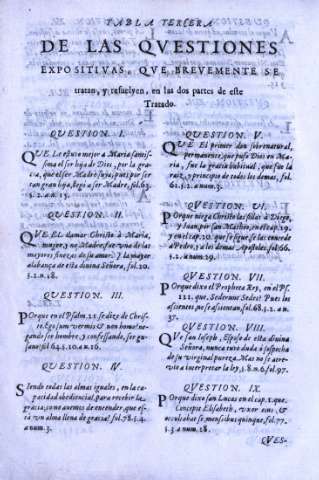 TABLA TERCERA
DE LAS QVESTIONES
EXPOSITIVAS, QVE BREVEMENTE SE
tratan, y resuelven, en las dos partes de este
Tratado.
QVESTION. I.
QVE Le estuvo mejor a Maria santis-
sima el ser hija de Dios, por la gra-
cia, que el ser Madre suya; pues por ser
tan gran hija, llegò a ser Madre, fol. 63.
QVESTION. II.
QVE El llamar Christo à Maria,
muger, y no Madre, fue vna de las
mayores finezas de su amor. Y la mayor
alabanza de esta divina Señora, fol. 20.
5.1.n.18.
QVESTION. III.
Porque en el Psalm. 21. se dize de Chris-
to. Ego sum vermis & non homo? ne-
gando ser hombre, y confessando, ser gu-
sano? fol. 64.5.10.n.16.
QVESTION. IV.
Siendo todas las almas iguales, en la ca-
pacidad obediencial, para recibir la
gracia; como avemos de entender, que es-
tà vn alma llena de gracia? fol. 78.5.4.
a num. 3.
QVESTION. V.
QVE El primer don sobrenatural,
permanente, que puso Dios en Ma-
ria, fue la gracia habitual, que fue la
raiz, y principio de todos los demas. fol.
62.5.2.a num. 3.
QVESTION. VI.
Porque niega Christo las sillas à Diego,
y Juan, por san Matheo, en el cap. 19.
y en el cap. 20. que se sigue se las concede
a Pedro, y a los demas Apostoles, fol. 66.
5.2.a num. 29.
QVESTION. VII.
Porque dixo el Propheta Rey, en el Ps.
121. que, Sederunt Sedes? Pues los
assientos, no se assientan, fol. 68.5.2.a n.
37.
QVESTION. VIII.
QVe san Ioseph, Esposo de esta divina
Señora, nunca tuvo duda ò sospecha
de su virginal pureza. Mas no se atre-
via à interpretar la ley, 5.8.n.6. fol. 97.
QVESTION. IX.
Porque dixo san Lucas en el cap. 1. que:
Concepit Elisabeth, vxor eius, &
occultabat se, mensibus quinque, fol. 77.
5.3.a num. 18.
QVES-